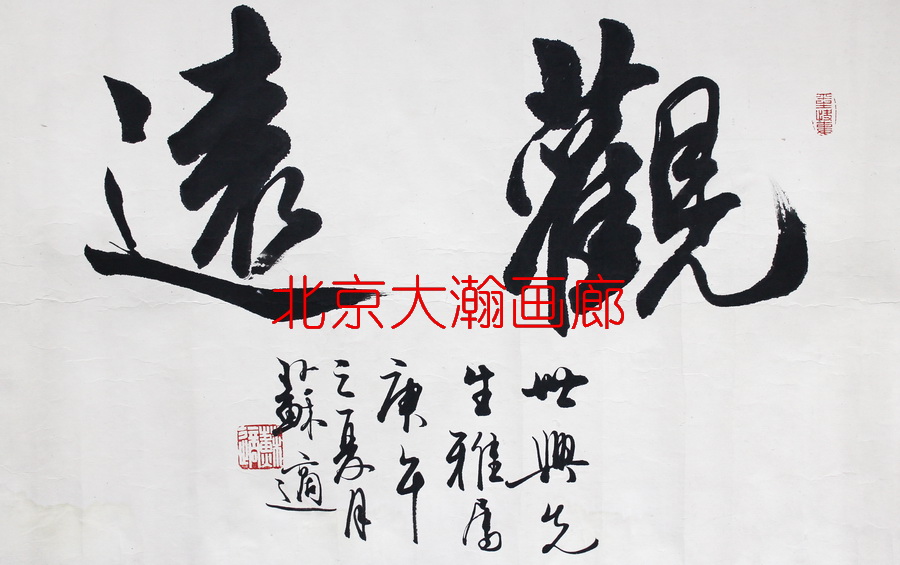 觀遠
世興先
生雅属
庚午
之夏月
蘇適
北京大瀚画廊